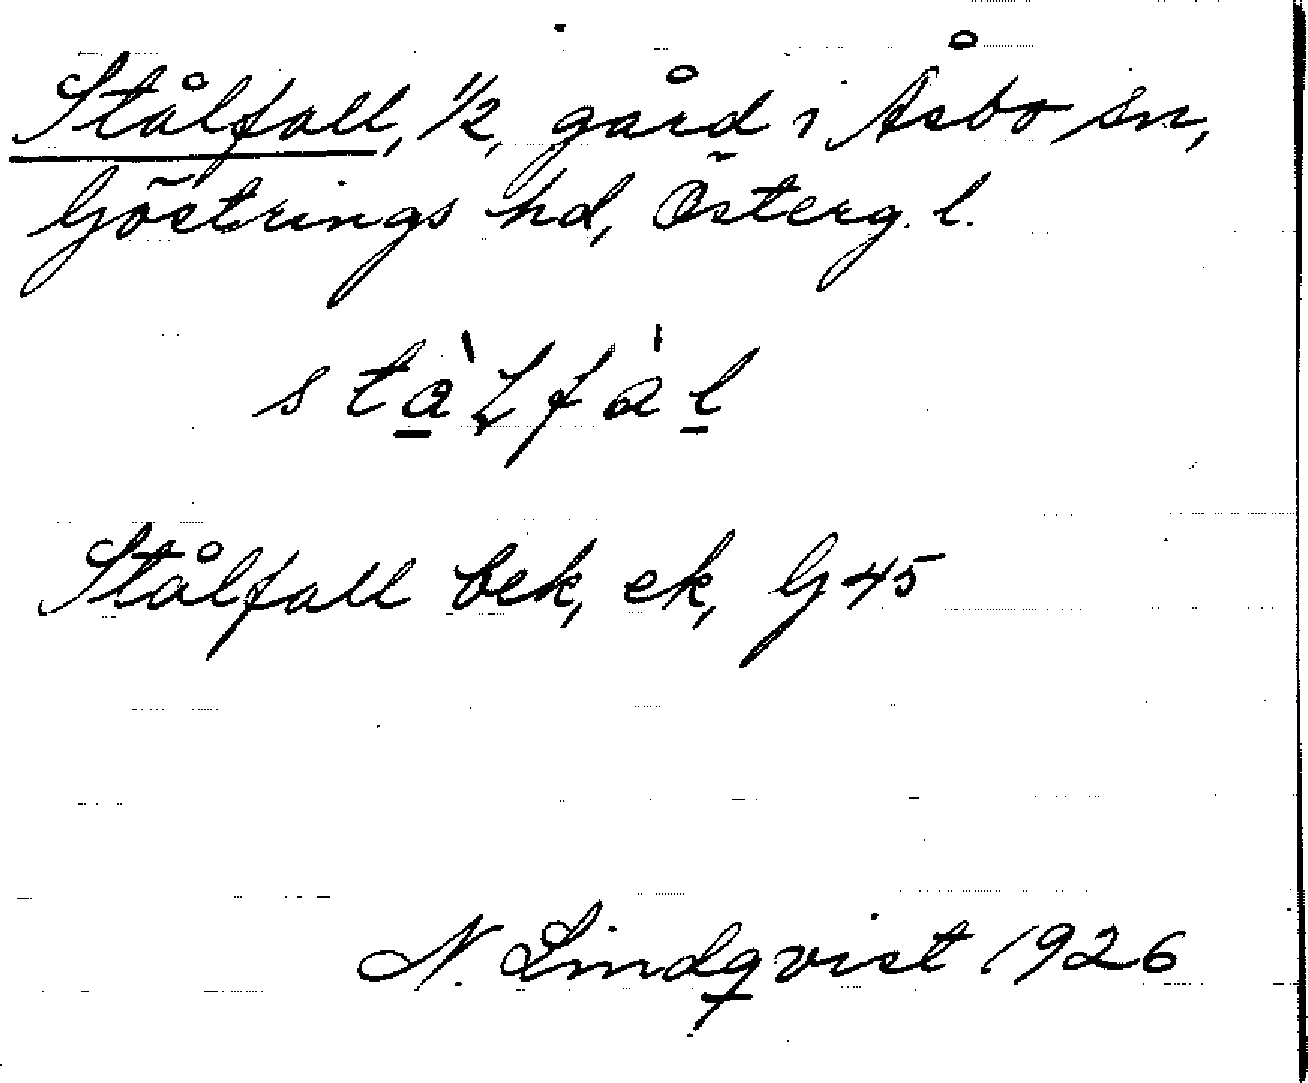 Stålfall, 1/2, gård i Åsbo sn,
Göstrings hd, Österg. l.
stàlfál
Stålfall bek, ek, G 45
N. Lindqvist 1926